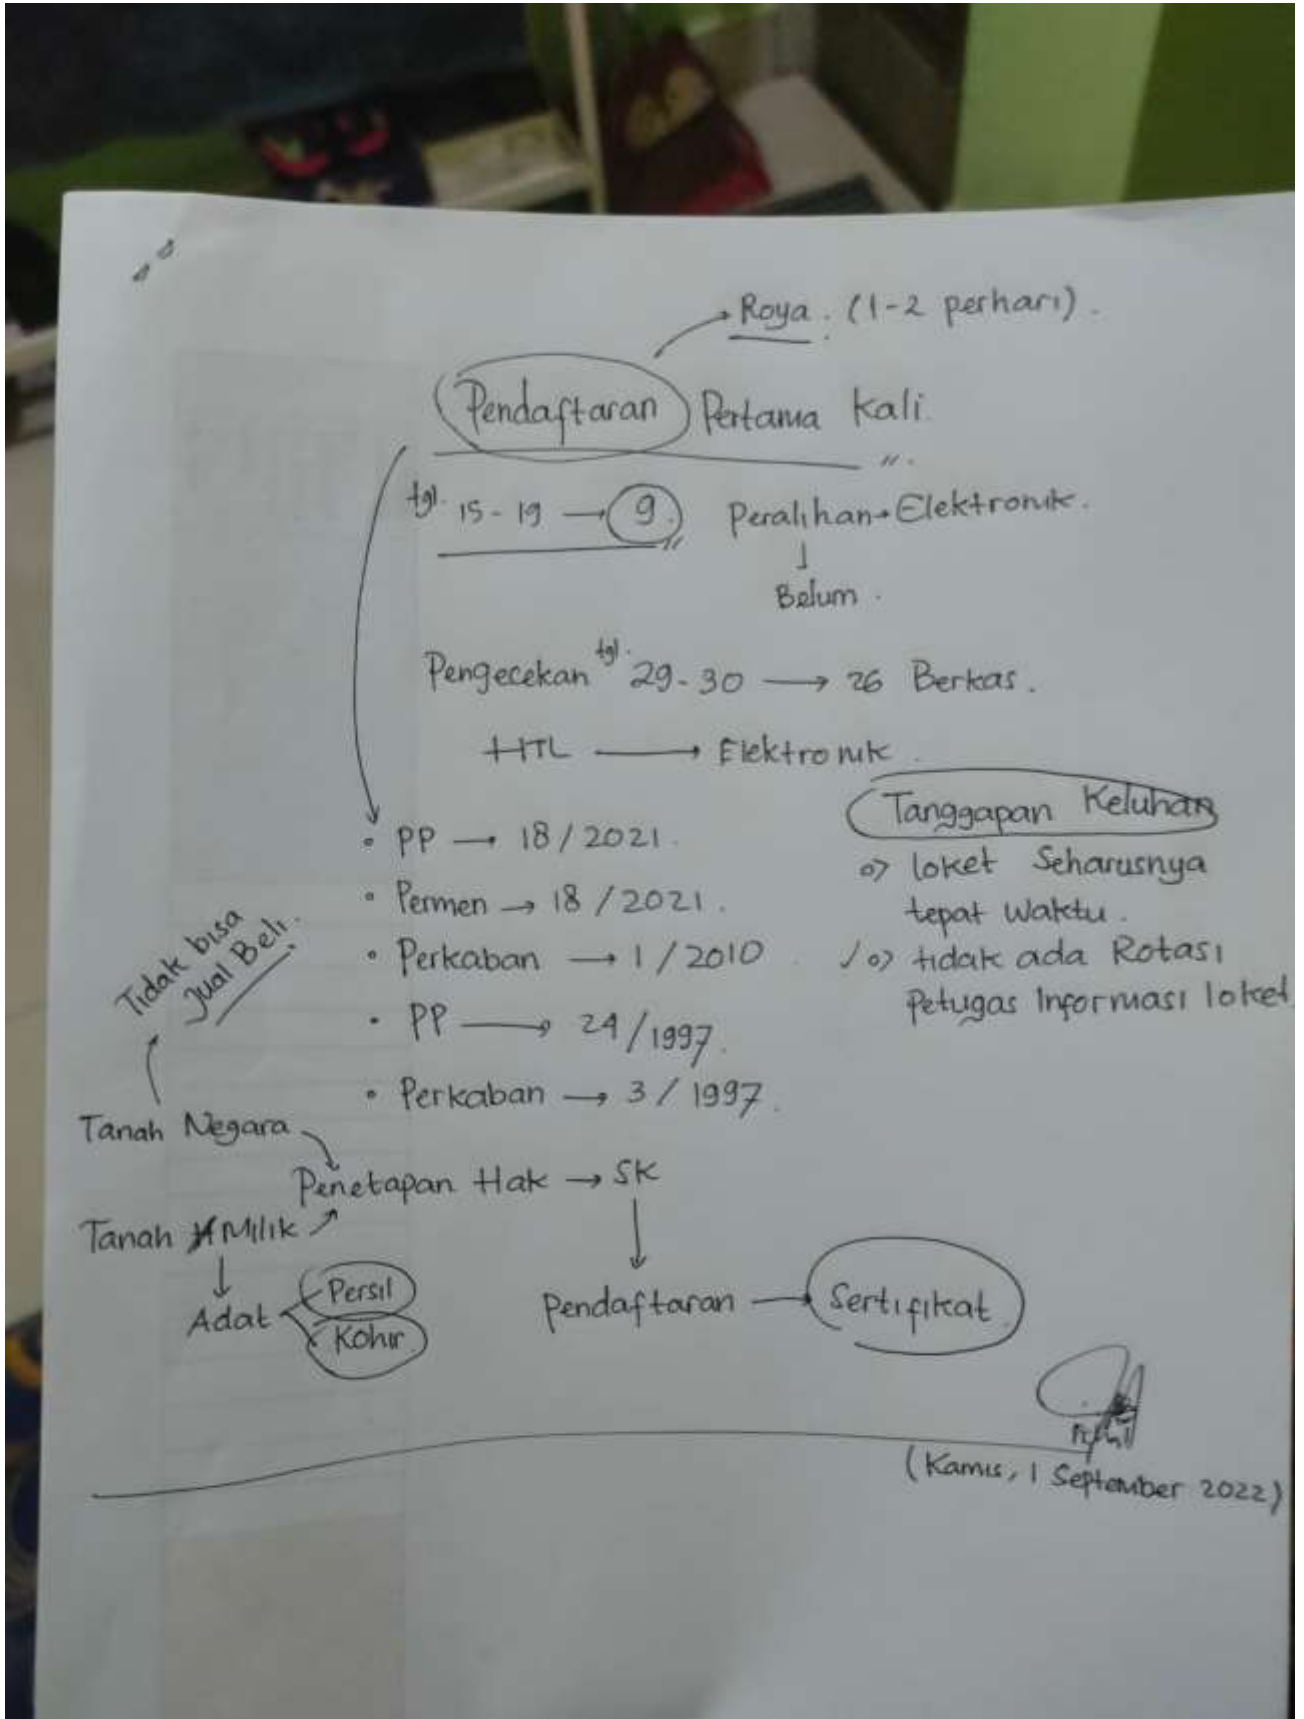 → Roya. (1-2 perhari).
Pendaftaran Pertama Kali.
tgl. 15-19 → 9. Peralihan → Elektronik.
↓
Belum.
Pengecekan tgl. 29-30 → 26 Berkas.
HTL → Elektronik.
• PP → 18/2021.
• Permen → 18/2021.
• Perkaban → 1/2010.
• PP → 24/1997.
• Perkaban → 3/1997.
Tanggapan Keluhan
loket Seharusnya
tepat waktu.
tidak ada Rotasi
Petugas Informasi loket
Tidak bisa
Jual Beli.
Tanah Negara
Penetapan Hak → SK
Tanah Milik
Adat
Persil
Kohir
Pendaftaran → Sertifikat
(Kamis, 1 September 2022)